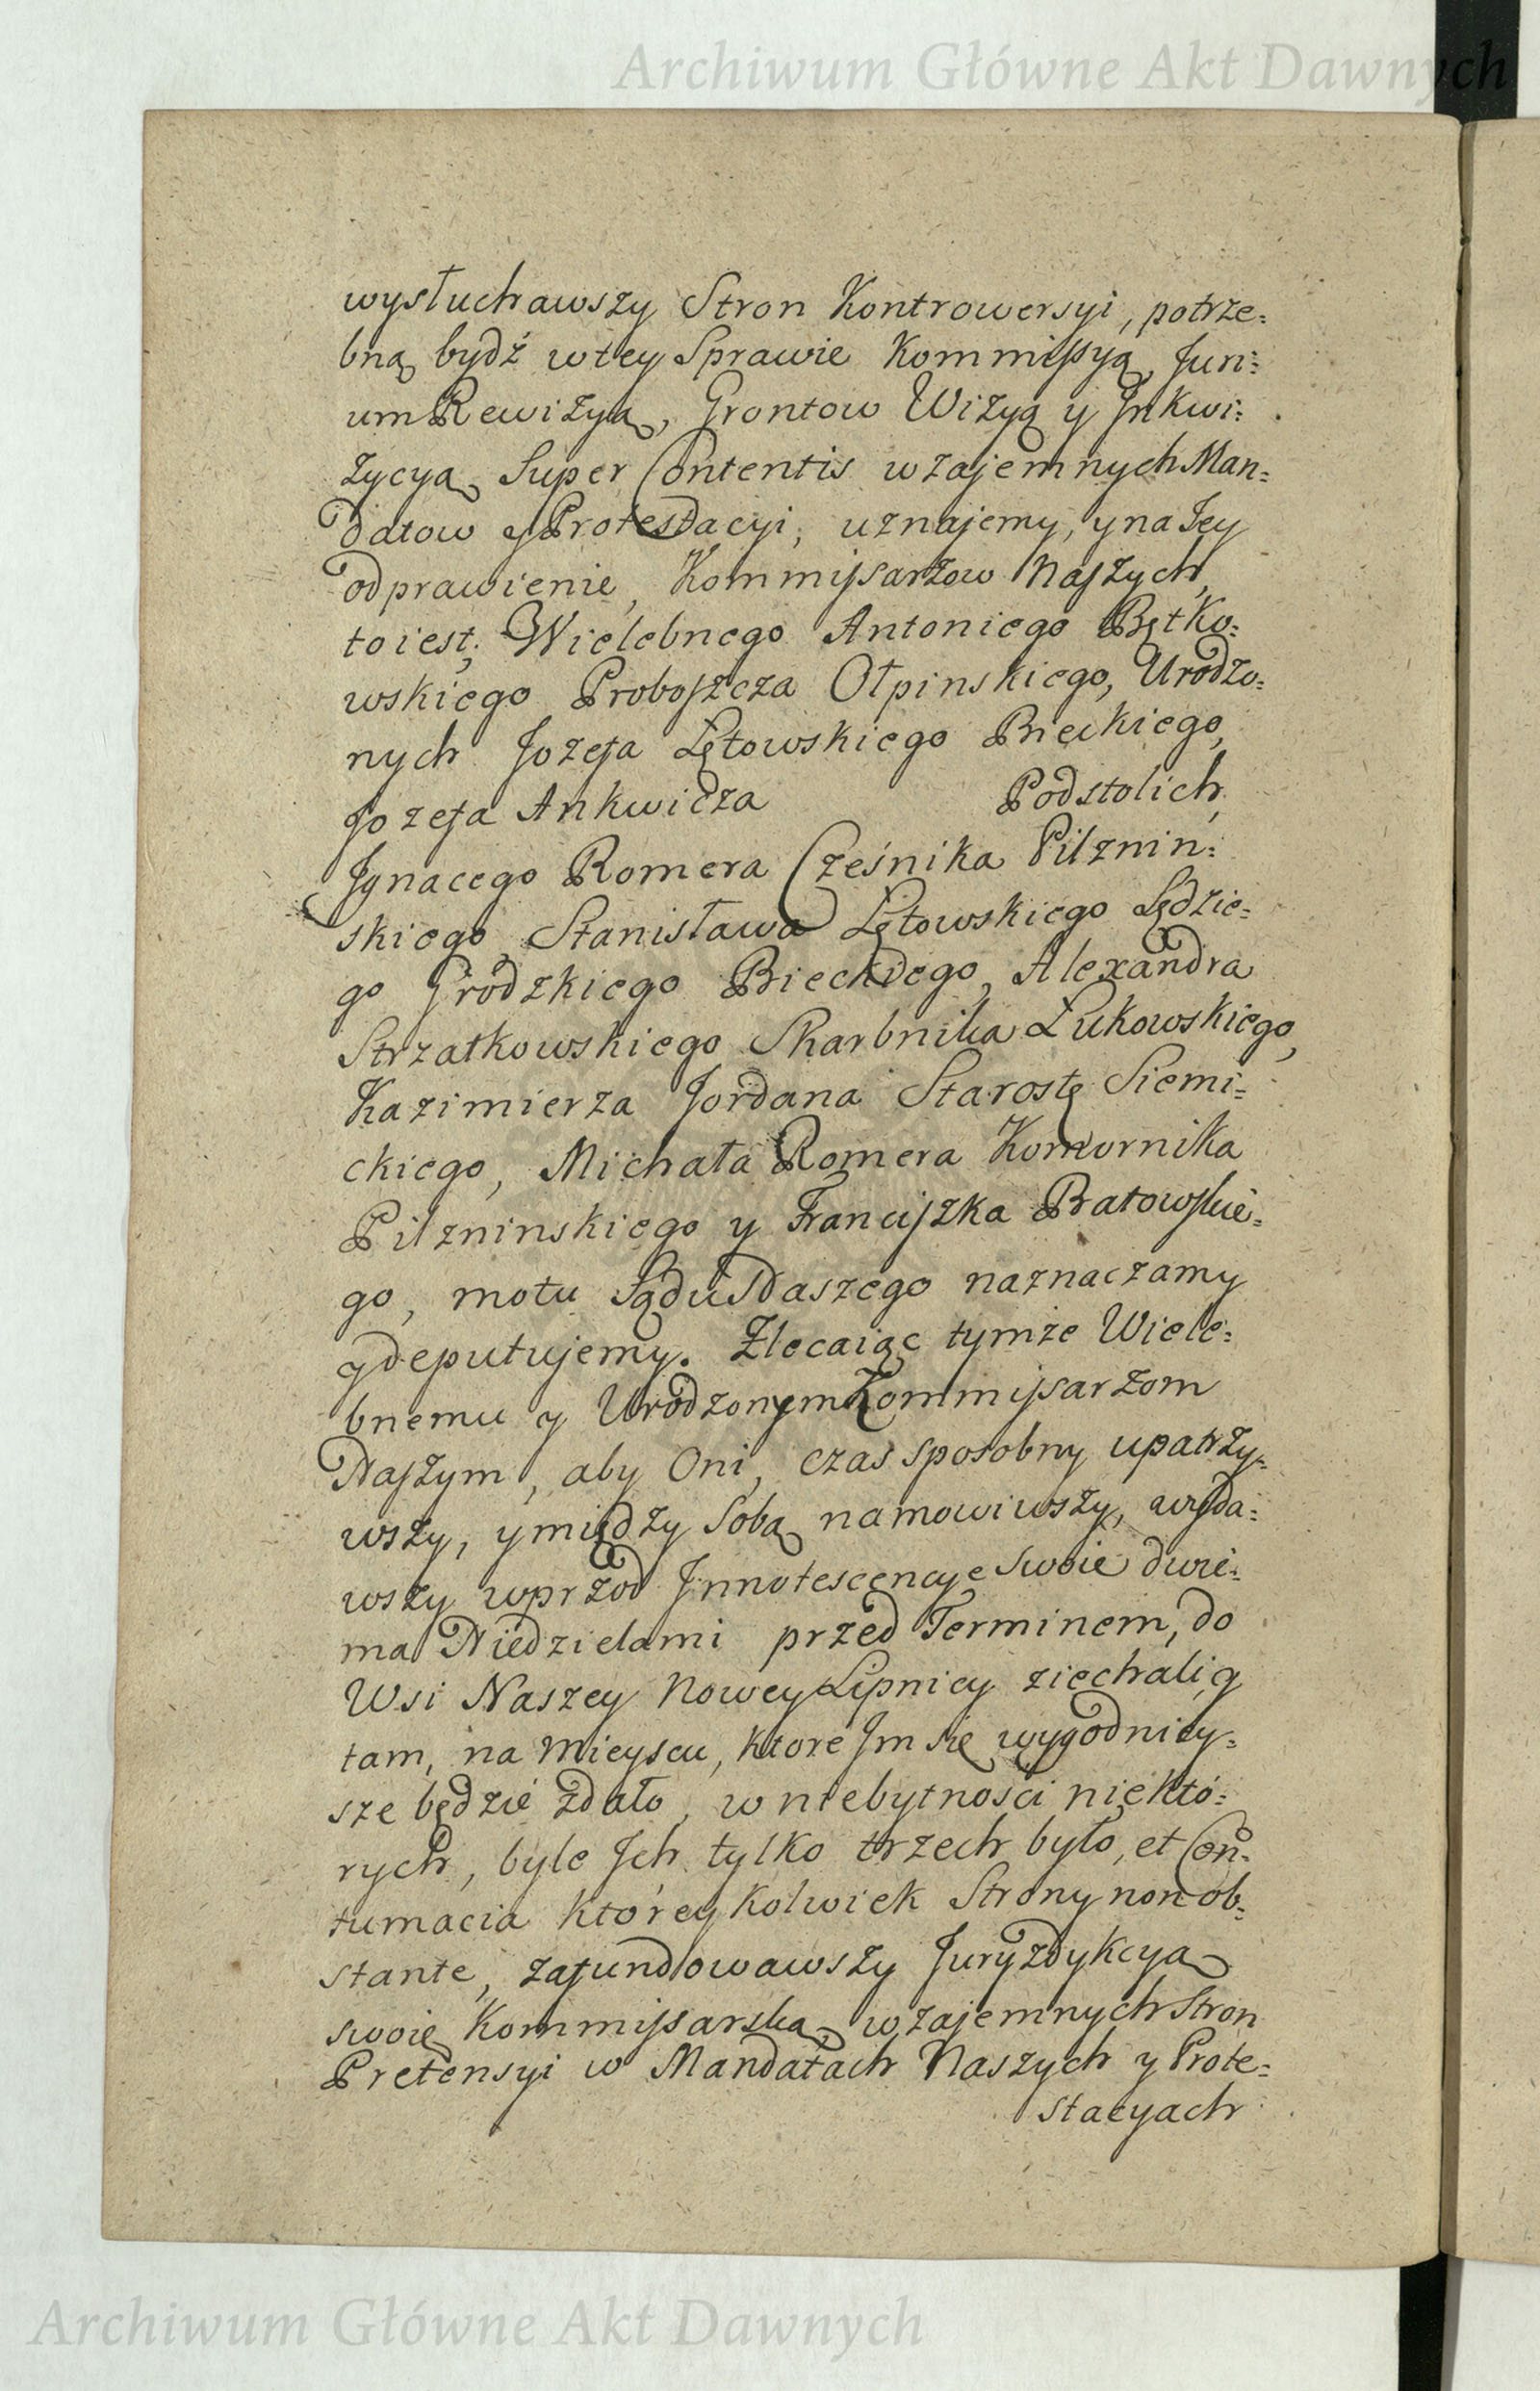 Archiwum Główne Akt Dawnych
wysłuchawszy Stron Kontrowersyi, potrze=
bną bydź wtey Sprawie Kommissyą, Juri=
um Rewizyą, Grontow Wizyą y Jnkwi=
zycyą Super Contentis wzajemnych Man=
datow y Protestacyi, uznajemy, y na Jey
odprawienie, Kommissarzow Naszych,
to iest; Wielebnego Antoniego Bętko=
wskiego Proboszcza Ołpinskiego, Urodzo=
nych Jozefa Łętowskiego Bieckiego,
Jozefa Ankwicza Podstolich,
Jgnacego Romera Cześnika Pilznin=
skiego, Stanisława Łętowskiego Sędzie=
go Grodzkiego Bieckiego, Alexandra
Strzałkowskiego Skarbnika Łukowskiego,
Kazimierza Jordana Starostę Siemi=
ckiego, Michała Romera Komornika
Pilzninskiego y Franciszka Batowskie=
go, motu Sądu Naszego naznaczamy
y deputujemy. Zlecaiąc tymże Wiele=
bnemu y Urodzonym Kommissarzom
Naszym, aby Oni, czas sposobny upatrzy=
wszy, y między Sobą namowiwszy, wyda=
wszy wprzod Jnnotescencye swoie dwie=
ma Niedzielami przed Terminem, do
Wsi Naszey Nowey Lipnicy ziechali, y
tam, na Mieyscu, ktore Jm się wygodniey=
sze będzie zdało, w niebytnosci niektó=
rych, byle Jch tylko trzech było, et Con=
tumacia którey kolwiek Strony non ob=
stante, zafundowawszy Juryzdykcyą
swoię Kommissarską, wzajemnych Stron
Pretensyi w Mandatach Naszych y Prote=
stacyach
Archiwum Główne Akt Dawnych